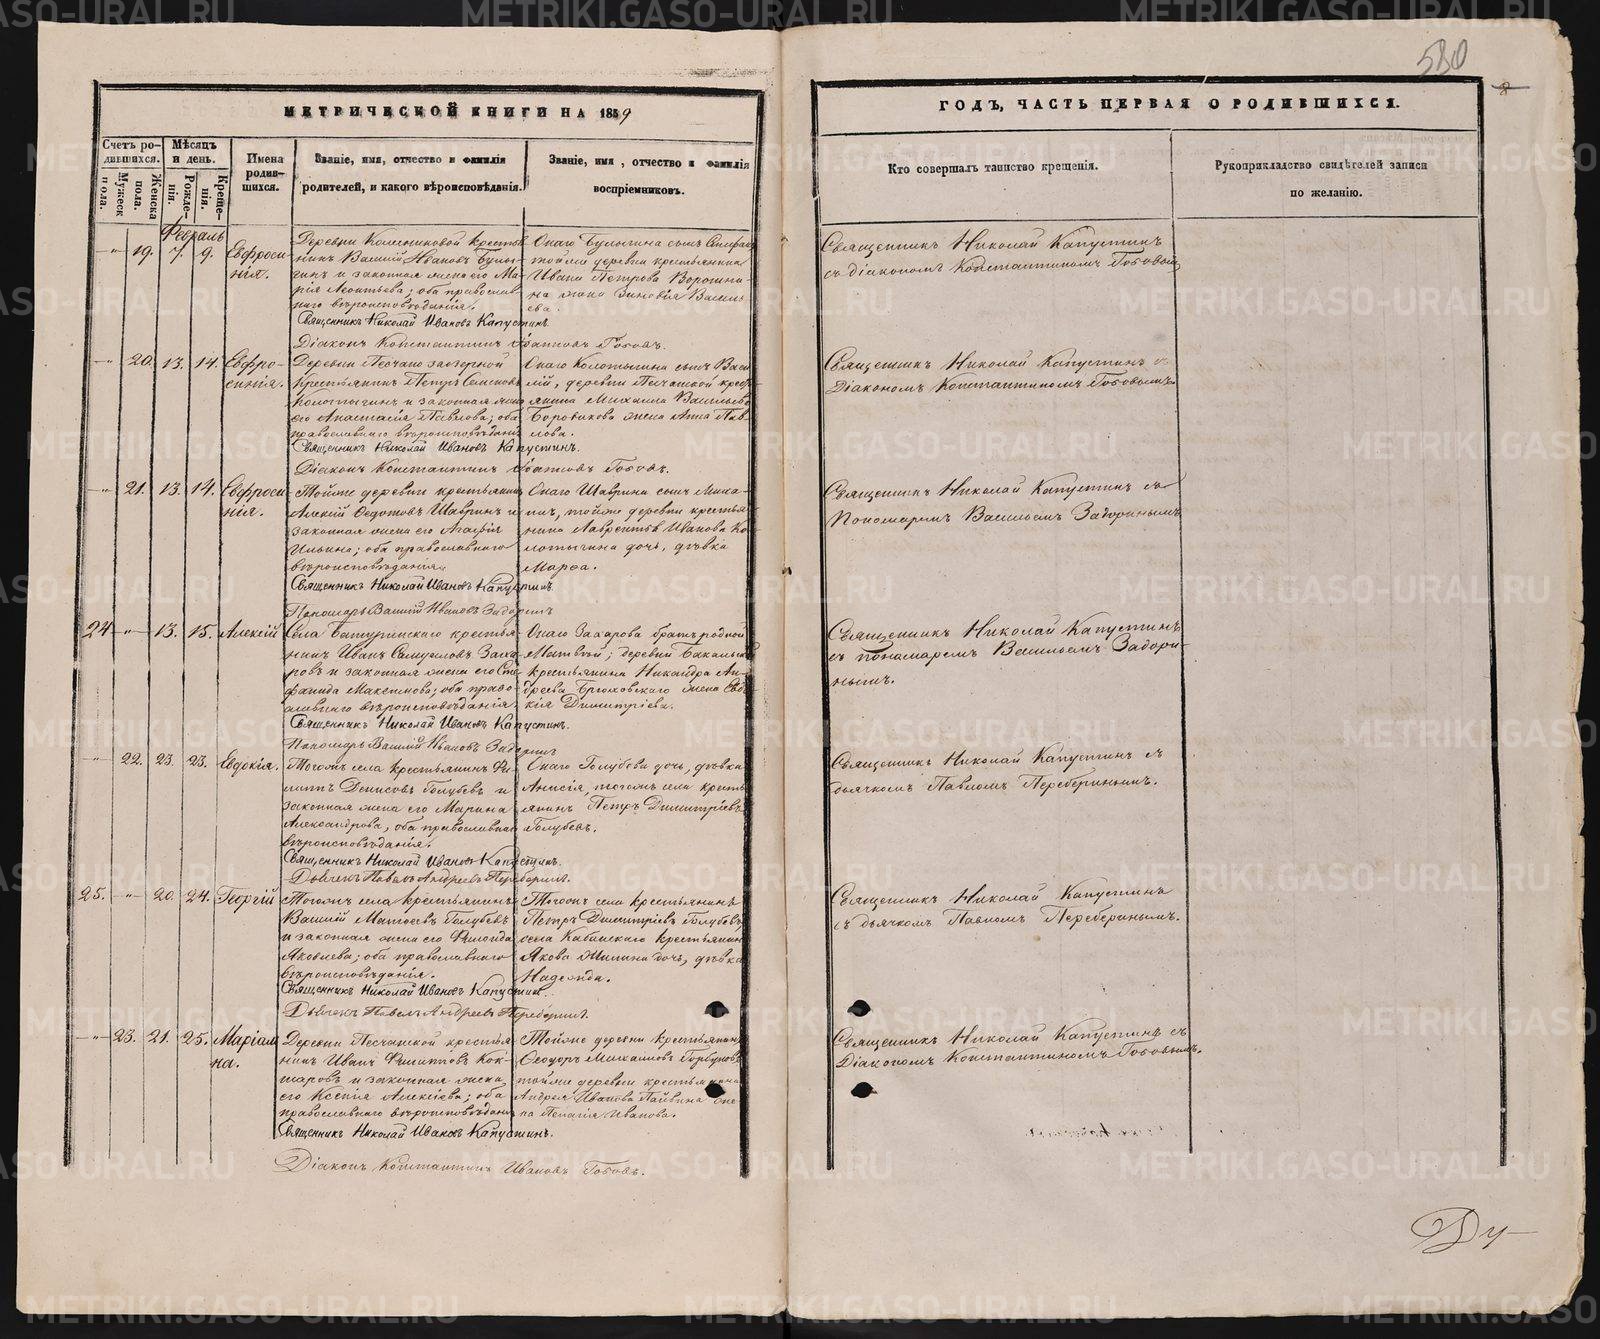 580
8
МЕТРИЧЕСКОЙ КНИГИ НА 1859
ГОДЪ, ЧАСТЬ ПЕРВАЯ О РОДИВШИХСЯ.
Счетъ родившихся.
Мужеска пола.
Женска пола.
Мѣсяцъ и день.
Рожденія.
Крещенія.
Имена родившихся.
Званіе, имя, отчество и фамилія
родителей, и какого вѣроисповѣданія.
Званіе, имя, отчество и фамилія
воспріемниковъ.
Кто совершалъ таинство крещенія.
Рукоприкладство свидѣтелей записи
по желанію.
Февраль
19. 7. 9. Евфросинія.
Деревни Колесниковой крестьянинъ
Василій Ивановъ
и законная жена его Марія
Леонтьева; оба православнаго
вѣроисповѣданія.
Священникъ Николай Ивановъ Капустинъ.
Діаконъ Константинъ
тойже деревни крестьянина
Ивана Петрова
жена Зиновія Васильева.
Священникъ Николай Капустинъ
съ діакономъ Константиномъ
20. 13. 14. Евфросинія.
Деревни
Крестьянинъ Петръ
Колотыгинъ и законная жена
его Анастасія Павлова; оба
православнаго вѣроисповѣданія
Священникъ Николай Ивановъ Капустинъ.
Діаконъ Константинъ
Онаго Колотыгина сынъ Василій,
деревни Песчанской
Михаила Васильева
Боровикова жена Анна Павлова.
Священникъ Николай Капустинъ съ
Діакономъ Константиномъ
21. 13. 14. Евфросинія.
Тойже деревни крестьянинъ
Алексій Федотовъ Шавринъ и
законная жена его Агафія
Ильина; оба православнаго
вѣроисповѣданія.
Священникъ Николай Ивановъ Капустинъ.
Пономарь Василій Ивановъ Задоринъ
Онаго Шаврина сынъ
тойже деревни крестьянина
Лаврентія Иванова Колотыгина
дочь, дѣвка
Марѳа.
Священникъ Николай Капустинъ съ
Пономаремъ Васильемъ Задоринымъ
24 13. 15. Алексій
Села Батуринскаго крестьянинъ
Иванъ Самуиловъ Захаровъ
и законная жена его Стефанида
Максимова; оба православнаго
вѣроисповѣданія.
Священникъ Николай Ивановъ Капустинъ.
Пономарь Василій Ивановъ Задоринъ
Онаго Захарова братъ родной
Матвѣй; деревни Бакальской
крестьянина Никандра Андреева
Брюховскаго жена Евдокія
Димитріева.
Священникъ Николай Капустинъ
съ пономаремъ Васильемъ Задоринымъ.
22. 23. 23. Евдокія.
Тогожъ села крестьянинъ Филиппъ
Денисовъ Голубевъ и
законная жена его Марина
Александрова, оба православнаго
вѣроисповѣданія.
Священникъ Николай Ивановъ Капустинъ.
Дьячекъ Павелъ Андреевъ Переберинъ.
Онаго Голубева дочь, дѣвка
Анисія, тогожъ села крестьянинъ
Петръ Димитріевъ
Голубевъ.
Священникъ Николай Капустинъ съ
дьячкомъ Павломъ Переберинымъ.
25. 20. 24. Георгій
Тогожъ села крестьянинъ
Василій Матѳеевъ Голубевъ
и законная жена его
Яковлева; оба православнаго
вѣроисповѣданія.
Священникъ Николай Ивановъ Капустинъ.
Дьячекъ Павелъ Андреевъ Переберинъ.
Тогожъ села крестьянинъ
Петръ Димитріевъ Голубевъ,
села Кабанскаго крестьянина
Якова Жилина дочь, дѣвка
Надежда.
Священникъ Николай Капустинъ
съ дьячкомъ Павломъ Переберинымъ.
23. 21. 25. Маріамна.
Деревни Песчанской крестьянинъ
Иванъ Филипповъ Кокшаровъ
и законная жена
его Ксенія Алексіева; оба
православнаго вѣроисповѣданія
Священникъ Николай Ивановъ Капустинъ.
Діаконъ Константинъ Ивановъ
Тойже деревни крестьянинъ
Ѳеодоръ Михаиловъ Горбуновъ,
тойже деревни крестьянина
Андрея Иванова жена
Пелагія Иванова.
Священникъ Николай Капустинъ съ
Діакономъ Константиномъ